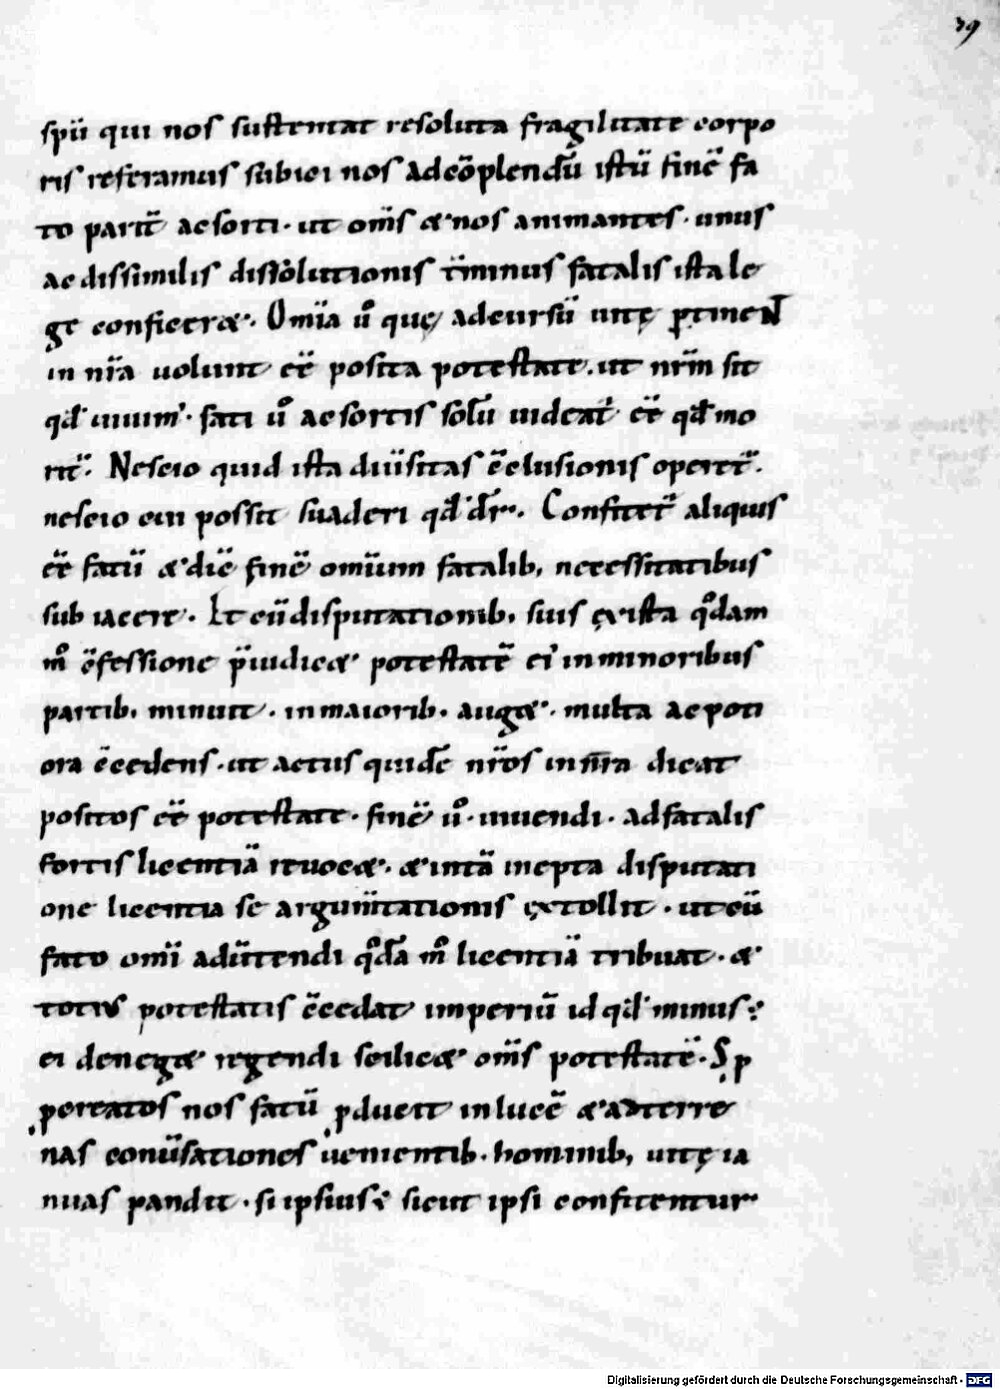 29
spū qui nos sustentat resoluta fragilitate corpo
ris referamus subici nos adcōplendū istū finē fa
to pariť ac sorti · ut om̄s & nos animantes · unus
ac dissimilis dissolutionis t̄minus fatalis ista le
ge conficer& · Om̄ia ů quę ad cursū uitę ꝑtineNT
in nr̄a uolunt eē posita potestate · ut nr̄m sit
qđ uiuim' · fati ů ac sortis solū uideat' eē qđ mo
rim̄ · Nescio quid ista diūsitas c̄clusionis operet̄ ·
nescio cui possit suaderi qđ dr̄ · Confitet̄ aliquis
eē fatū & diē finē omnium fatalib, necessitatibus
sub iacere · Et cū disputationib, suis ęx ista qͦdam
mͦ c̄fessione p̄iudic& potestatē ei' in minoribus
partib, minuit · in maiorib, aug& · multa ac poti
ora c̄cedens · ut actus quidē nr̄os in nr̄a dicat
positos eē potestate · finē ů · uiuendi · ad fatalis
sortis licentiā reuoc& · & intā inepta disputati
one licentia se argum̄tationis ęxtollit · ut cū
fato om̄i adim̄endi qͦdā mͦ licentiā tribuat · &
totius potestatis c̄cedat imperiū id qđ minus ÷
ei deneg& regendi scilic& om̄s potestatē · Sꝑ
procreatos nos fatū ꝓducit in lucē & ad terre
nas conūsationes uenientib, hominib, uitę ia
nuas pandit · si ipsius ÷ sicut ipsi confitentur
Digitalisierung gefördert durch die Deutsche Forschungsgemeinschaft - DFG